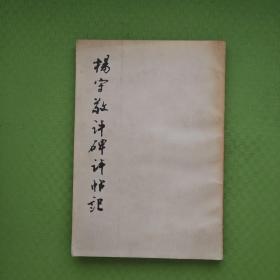 楊守敬评碑评帖記